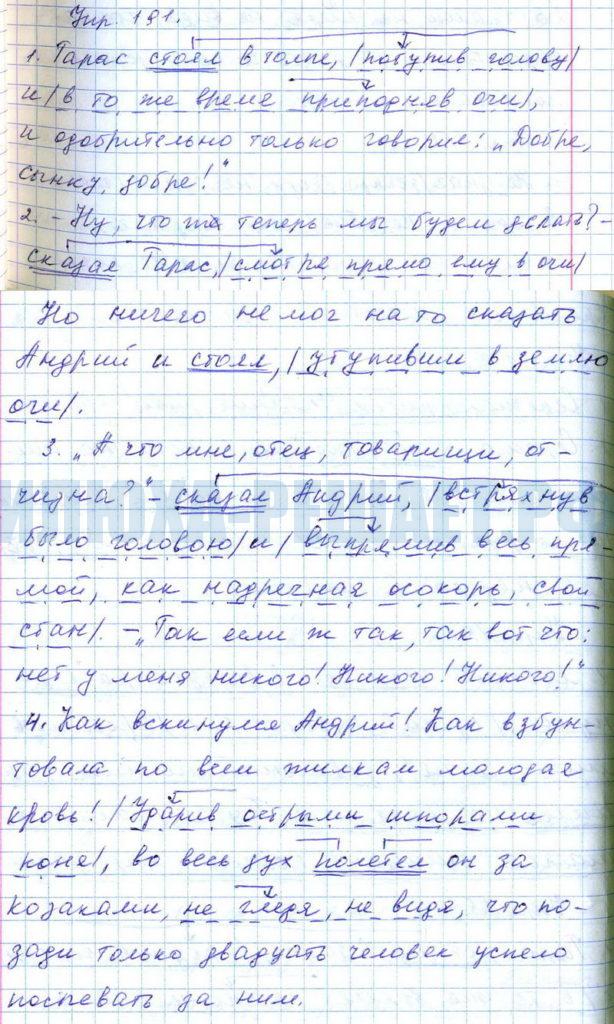 Упр. 191.
1. Тарас стоял в толпе, |потупив голову|
и |в то же время приподняв очи|,
и одобрительно только говорил: „Добре,
сынку, добре!“
2. – Ну, что же теперь мы будем делать? –
сказал Тарас, |смотря прямо ему в очи|
Но ничего не мог на то сказать
Андрий и стоял, |утупивши в землю
очи|.
3. „А что мне, отец, товарищи, от-
чизна?“ – сказал Андрий, |встряхнув
было головою| и |выпрямив весь пря-
мой, как надречная осокорь, свой
стан|. – „Так если ж так, так вот что:
нет у меня никого! Никого! Никого!“
4. Как вскинулся Андрий! Как взбун-
товала по всем жилкам молодая
кровь! |Ударив острыми шпорами
коня|, во весь дух полетел он за
козаками, не глядя, не видя, что по-
зади только двадцать человек успело
поспевать за ним.